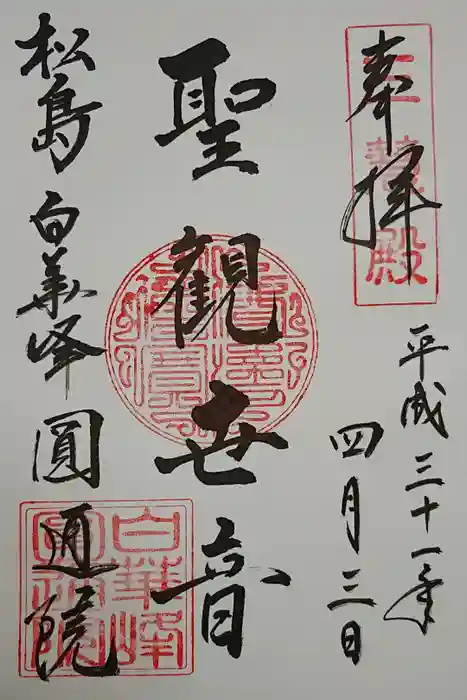 奉拝
三慧殿
平成三十一年
四月三日
聖観世音
松島白華峰圓通院
白華峰
圓通院